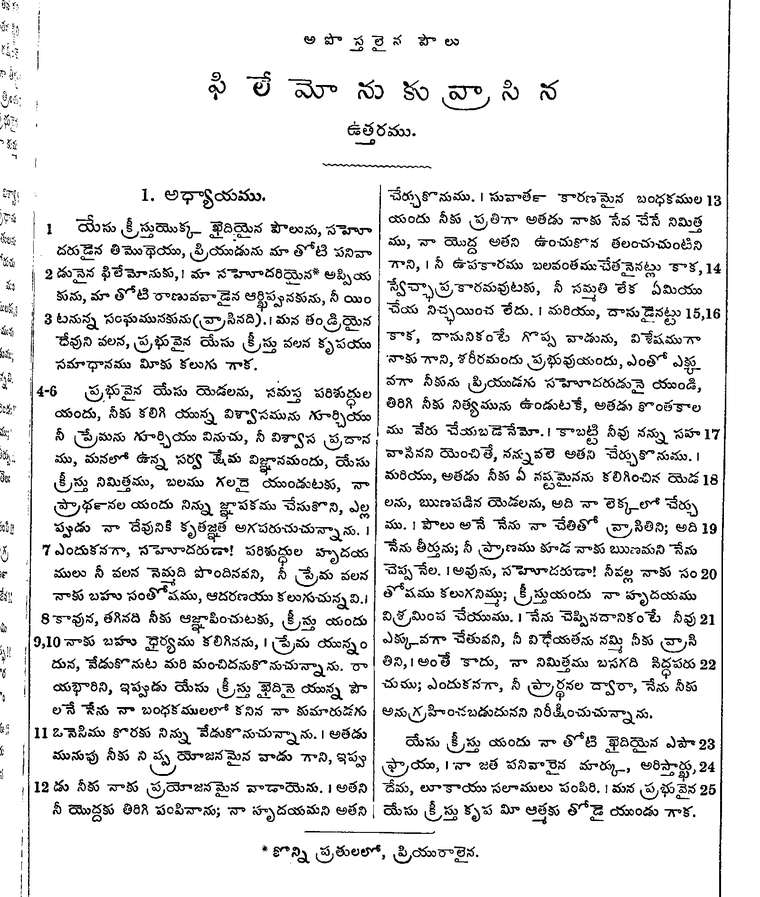 అపొస్తలైన పౌలు
ఫిలేమోనుకు వ్రాసిన
ఉత్తరము.
1. అధ్యాయము.
1 యేసు క్రీస్తుయొక్క ఖైదియైన పౌలును, సహో
దరుడైన తిమొథెయు, ప్రియుడును మా తోటి పనివా
2 డునైన ఫిలేమోనుకు,। మా సహోదరియైన* అప్పియ
కును, మా తోటి రాణువవాడైన ఆర్ఖిప్పునకును, నీ యిం
3 టనున్న సంఘమునకును (వ్రాసినది).। మన తండ్రియైన
దేవుని వలన, ప్రభువైన యేసు క్రీస్తు వలన కృపయు
సమాధానము మీకు కలుగు గాక.
4-6 ప్రభువైన యేసు యెడలను, సమస్త పరిశుద్ధుల
యందు, నీకు కలిగి యున్న విశ్వాసమును గూర్చియు
నీ ప్రేమను గూర్చియు వినుచు, నీ విశ్వాస ప్రదాన
ము, మనలో ఉన్న సర్వ క్షేమ విజ్ఞానమందు, యేసు
క్రీస్తు నిమిత్తము, బలము గలదై యుండుటకు, నా
ప్రార్థనల యందు నిన్ను జ్ఞాపకము చేసుకొని, ఎల్ల
ప్పుడు నా దేవునికి కృతజ్ఞత అగపరుచుచున్నాను.।
7 ఎందుకనగా, సహోదరుడా! పరిశుద్ధుల హృదయ
ములు నీ వలన నెమ్మది పొందినవని, నీ ప్రేమ వలన
నాకు బహు సంతోషము, ఆదరణయు కలుగుచున్నవి.।
8 కావున, తగినది నీకు ఆజ్ఞాపించుటకు, క్రీస్తు యందు
9,10 నాకు బహు ధైర్యము కలిగినను,। ప్రేమ యున్నం
దున, వేడుకొనుట మరి మంచిదనుకొనుచున్నాను. రా
యభారిని, ఇప్పుడు యేసు క్రీస్తు ఖైదినై యున్న పౌ
లనే నేను నా బంధకములలో కనిన నా కుమారుడగు
11 ఒనెసిము కొరకు నిన్ను వేడుకొనుచున్నాను.। అతడు
మునుపు నీకు నిష్ప్రయోజనమైన వాడు గాని, ఇప్పు
12 డు నీకు నాకు ప్రయోజనమైన వాడాయెను. । అతని
నీ యొద్దకు తిరిగి పంపినాను; నా హృదయమని అతని
చేర్చుకొనుము. । సువార్త కారణమైన బంధకముల 13
యందు నీకు ప్రతిగా అతడు నాకు సేవ చేసే నిమిత్త
ము, నా యొద్ద అతని ఉంచుకొన తలంచుచుంటిని
గాని, । నీ ఉపకారము బలవంతముచేతనైనట్లు కాక, 14
స్వేచ్ఛాప్రకారమవుటకు, నీ సమ్మతి లేక ఏమియు
చేయ నిచ్ఛయించ లేదు. । మరియు, దాసుడైనట్టు 15,16
కాక, దాసునికంటే గొప్ప వాడును, విశేషముగా
నాకు గాని, శరీరమందు ప్రభువుయందు, ఎంతో ఎక్కు
వగా నీకును ప్రియుడగు సహోదరుడునై యుండి,
తిరిగి నీకు నిత్యమును ఉండుటకే, అతడు కొంతకాల
ము వేరు చేయబడెనేమో. । కాబట్టి నీవు నన్ను సహ 17
వాసినని యెంచితే, నన్నువలె అతని చేర్చుకొనుము. ।
మరియు, అతడు నీకు ఏ నష్టమైనను కలిగించిన యెడ 18
లను, ఋణపడిన యెడలను, అది నా లెక్కలో చేర్చు
ము. । పౌలు అనే నేను నా చేతితో వ్రాసితిని; అది 19
నేను తీర్తును; నీ ప్రాణము కూడ నాకు ఋణమని నేను
చెప్ప నేల. । అవును, సహోదరుడా! నీవల్ల నాకు సం 20
తోషము కలుగనిమ్ము; క్రీస్తుయందు నా హృదయము
విశ్రమింప చేయుము. । నేను చెప్పినదానికంటే నీవు 21
ఎక్కువగా చేతువని, నీ విధేయతను నమ్మి నీకు వ్రాసి
తిని,। అంతే కాదు, నా నిమిత్తము బసగది సిద్ధపరు 22
చుము; ఎందుకనగా, నీ ప్రార్థనల ద్వారా, నేను నీకు
అనుగ్రహించబడుదునని నిరీక్షించుచున్నాను.
యేసు క్రీస్తు యందు నా తోటి ఖైదియైన ఎపా 23
ఫ్రాయు, । నా జత పనివారైన మార్కు, అరిస్తార్ఖు, 24
దేమ, లూకాయు సలాములు పంపిరి. । మన ప్రభువైన 25
యేసు క్రీస్తు కృప మీ ఆత్మకు తోడై యుండు గాక.
* కొన్ని ప్రతులలో, ప్రియురాలైన.